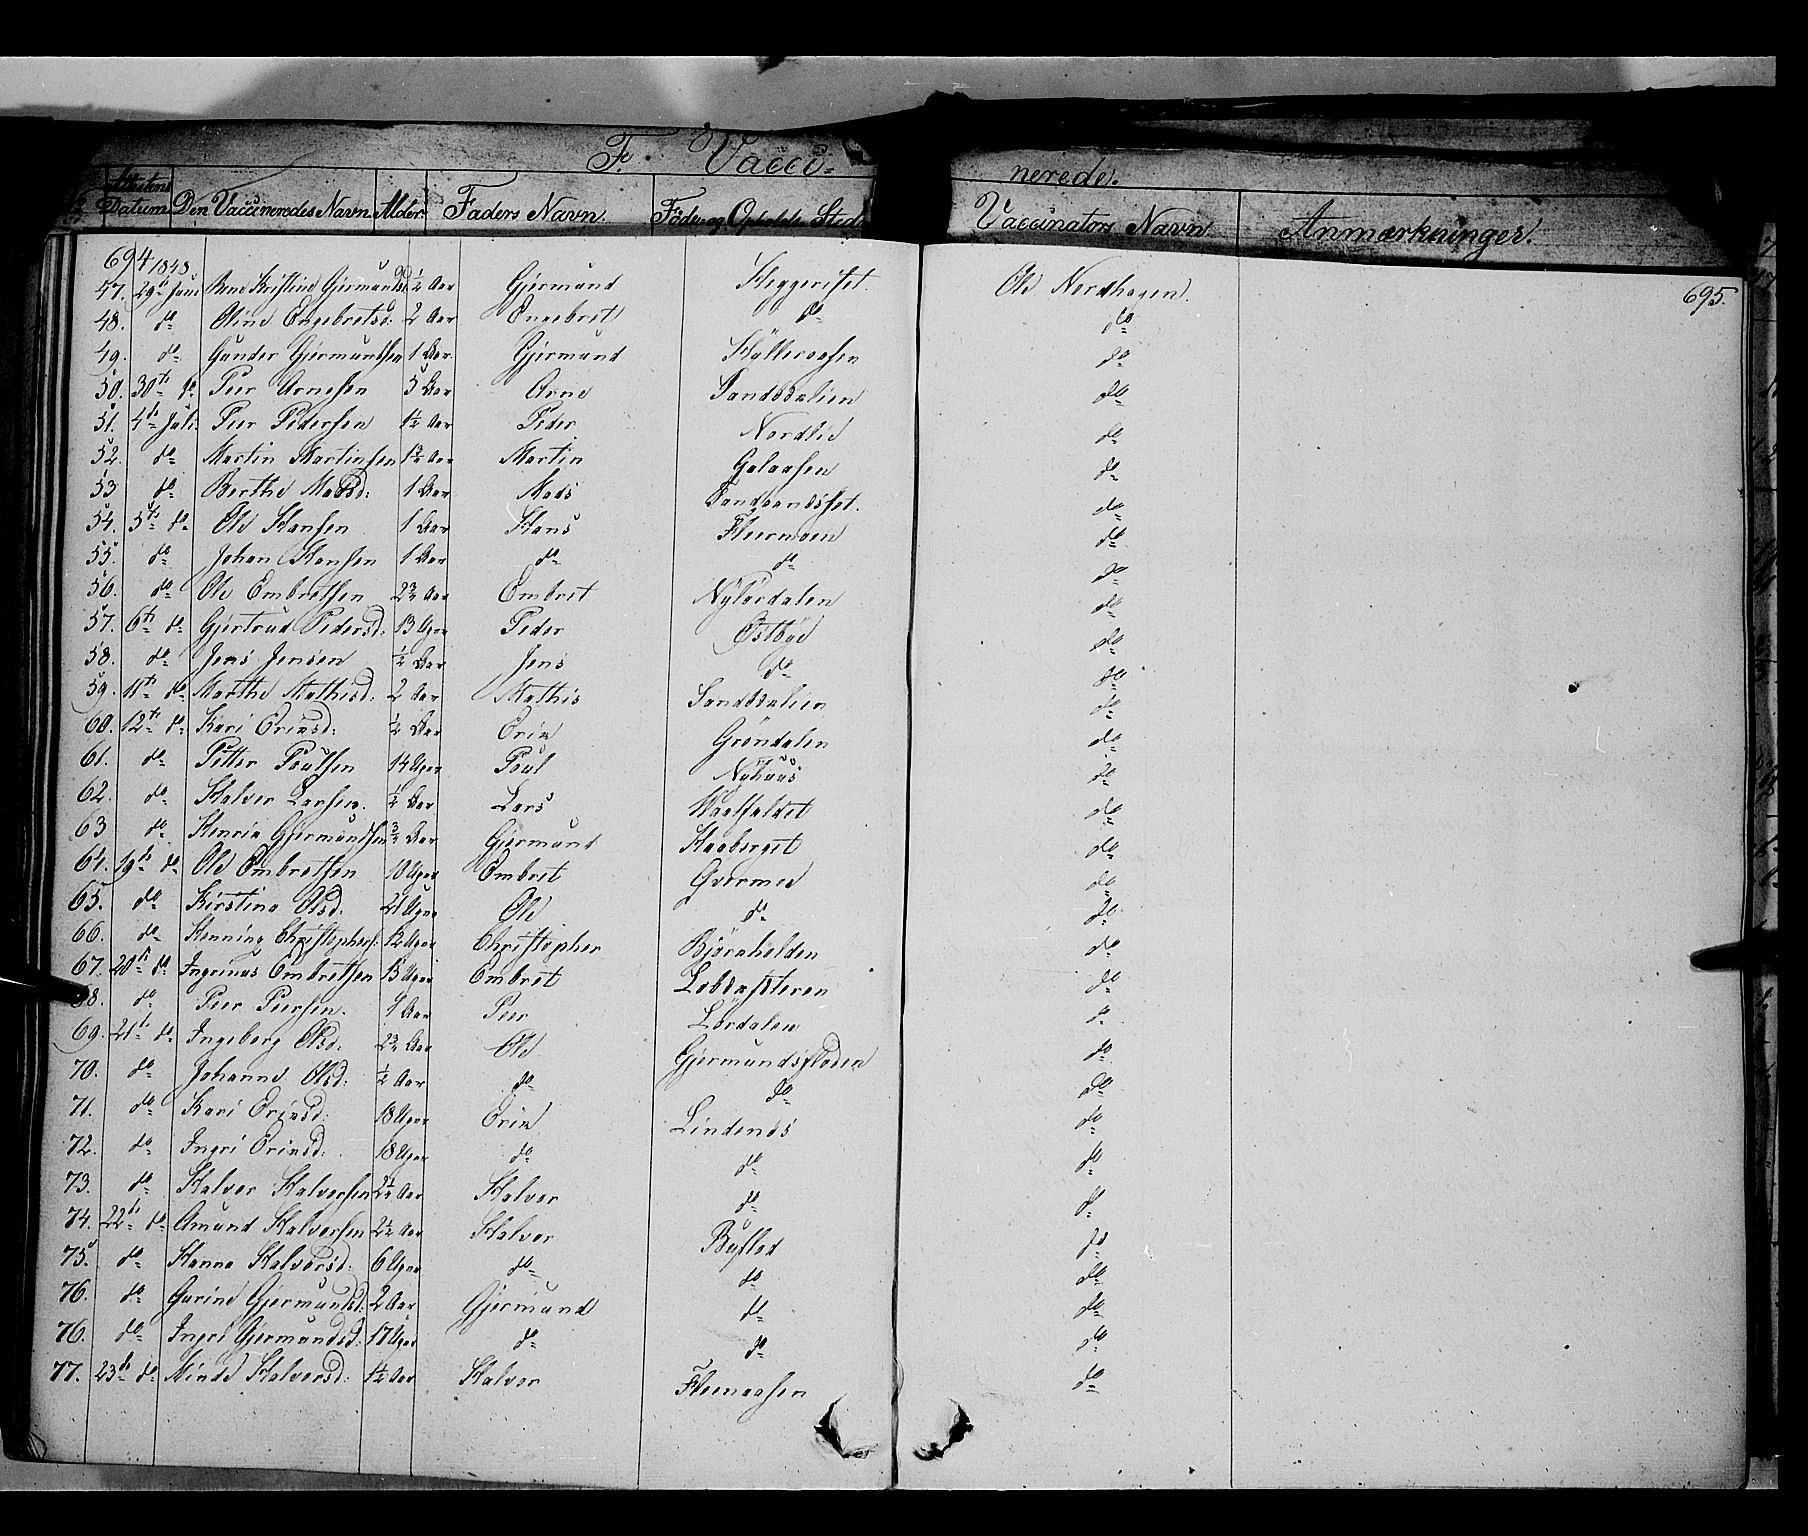 F. Vacci- nerede.
Attestens Datum Den Vaccineredes Navn Alder Faders Navn. Föde- og Opholds-Sted Vaccinators Navn Anmærkninger.
694 1848 695.
47. 29 Juni Kristine ½ Aar Gjermund Heggeriset. Ole Nordhagen.
48. do Oline Engebretsd: 2 Aar Engebret do do
49. do Gunder Gjermundsen 1 Aar Gjermund do
50. 30te do Peer Arnesen 5 Aar Arne Sandbdalien do
51. 4de Juli Peer Pedersen 1½ Aar Peder Nordlie do
52. do Martin Martinsen Aar Martin Galaasen do
53 do Berthe Madsd: 1 Aar Mads do
54. 5te do Ole Hansen 1 Aar Hans Flermoen do
55. do Johan Hansen 1 Aar do do do
56. do Ole Embretsen Aar Embret Nylördalen do
57. 6te do Gjertrud Pedersd: 13 Uger Peder Östbye do
58. do Jens Jensen ½ Aar Jens do do
59. 11te do Marthe Mathisd: 2 Aar Mathis Sandbdalien do
60. 12te do Kari Ericsd: ½ Aar Eric Gröndalen do
61. do Petter Poulsen 14 Uger Poul Nyhuus do
62. do Halver Larsen. ½ Aar Lars do
63 do Henric Gjermundsen Aar Gjermund Haaberget do
64. 19de do Ole Embretsen 10 Uger Embret do
65. do Kirstine Olsd: 21 Uger Ole do do
66. do Henning Christophers: 12 Uger Christopher Björnholden do
67. 20de do Ingrinus Embretsen 13 Uger Embret do
68. do Peer Peersen. Aar Peer Lördalen do
69. 21de do Ingeborg Olsd: Aar Ole Gjermundsfloden do
70. do Johanne Olsd: ½ Aar do do do
71. do Kari Ericsd: 18 Uger Eric Lindenes do
72. do Ingri Ericsd: 18 Uger do do do
73. do Halver Halversen 2½ Aar Halver do do
74. 22de do Amund Halversen 2½ Aar Halver Byflod do
75. do Hanna Halversd: 6 Uger do do do
76. do Gurine Gjermundsd: 2 Aar Gjermund do do
76. do Ingri Gjermundsd: 17 Uger do do do
77. 23de do Minde Halversd: 1½ Aar Halver Flenaasen do